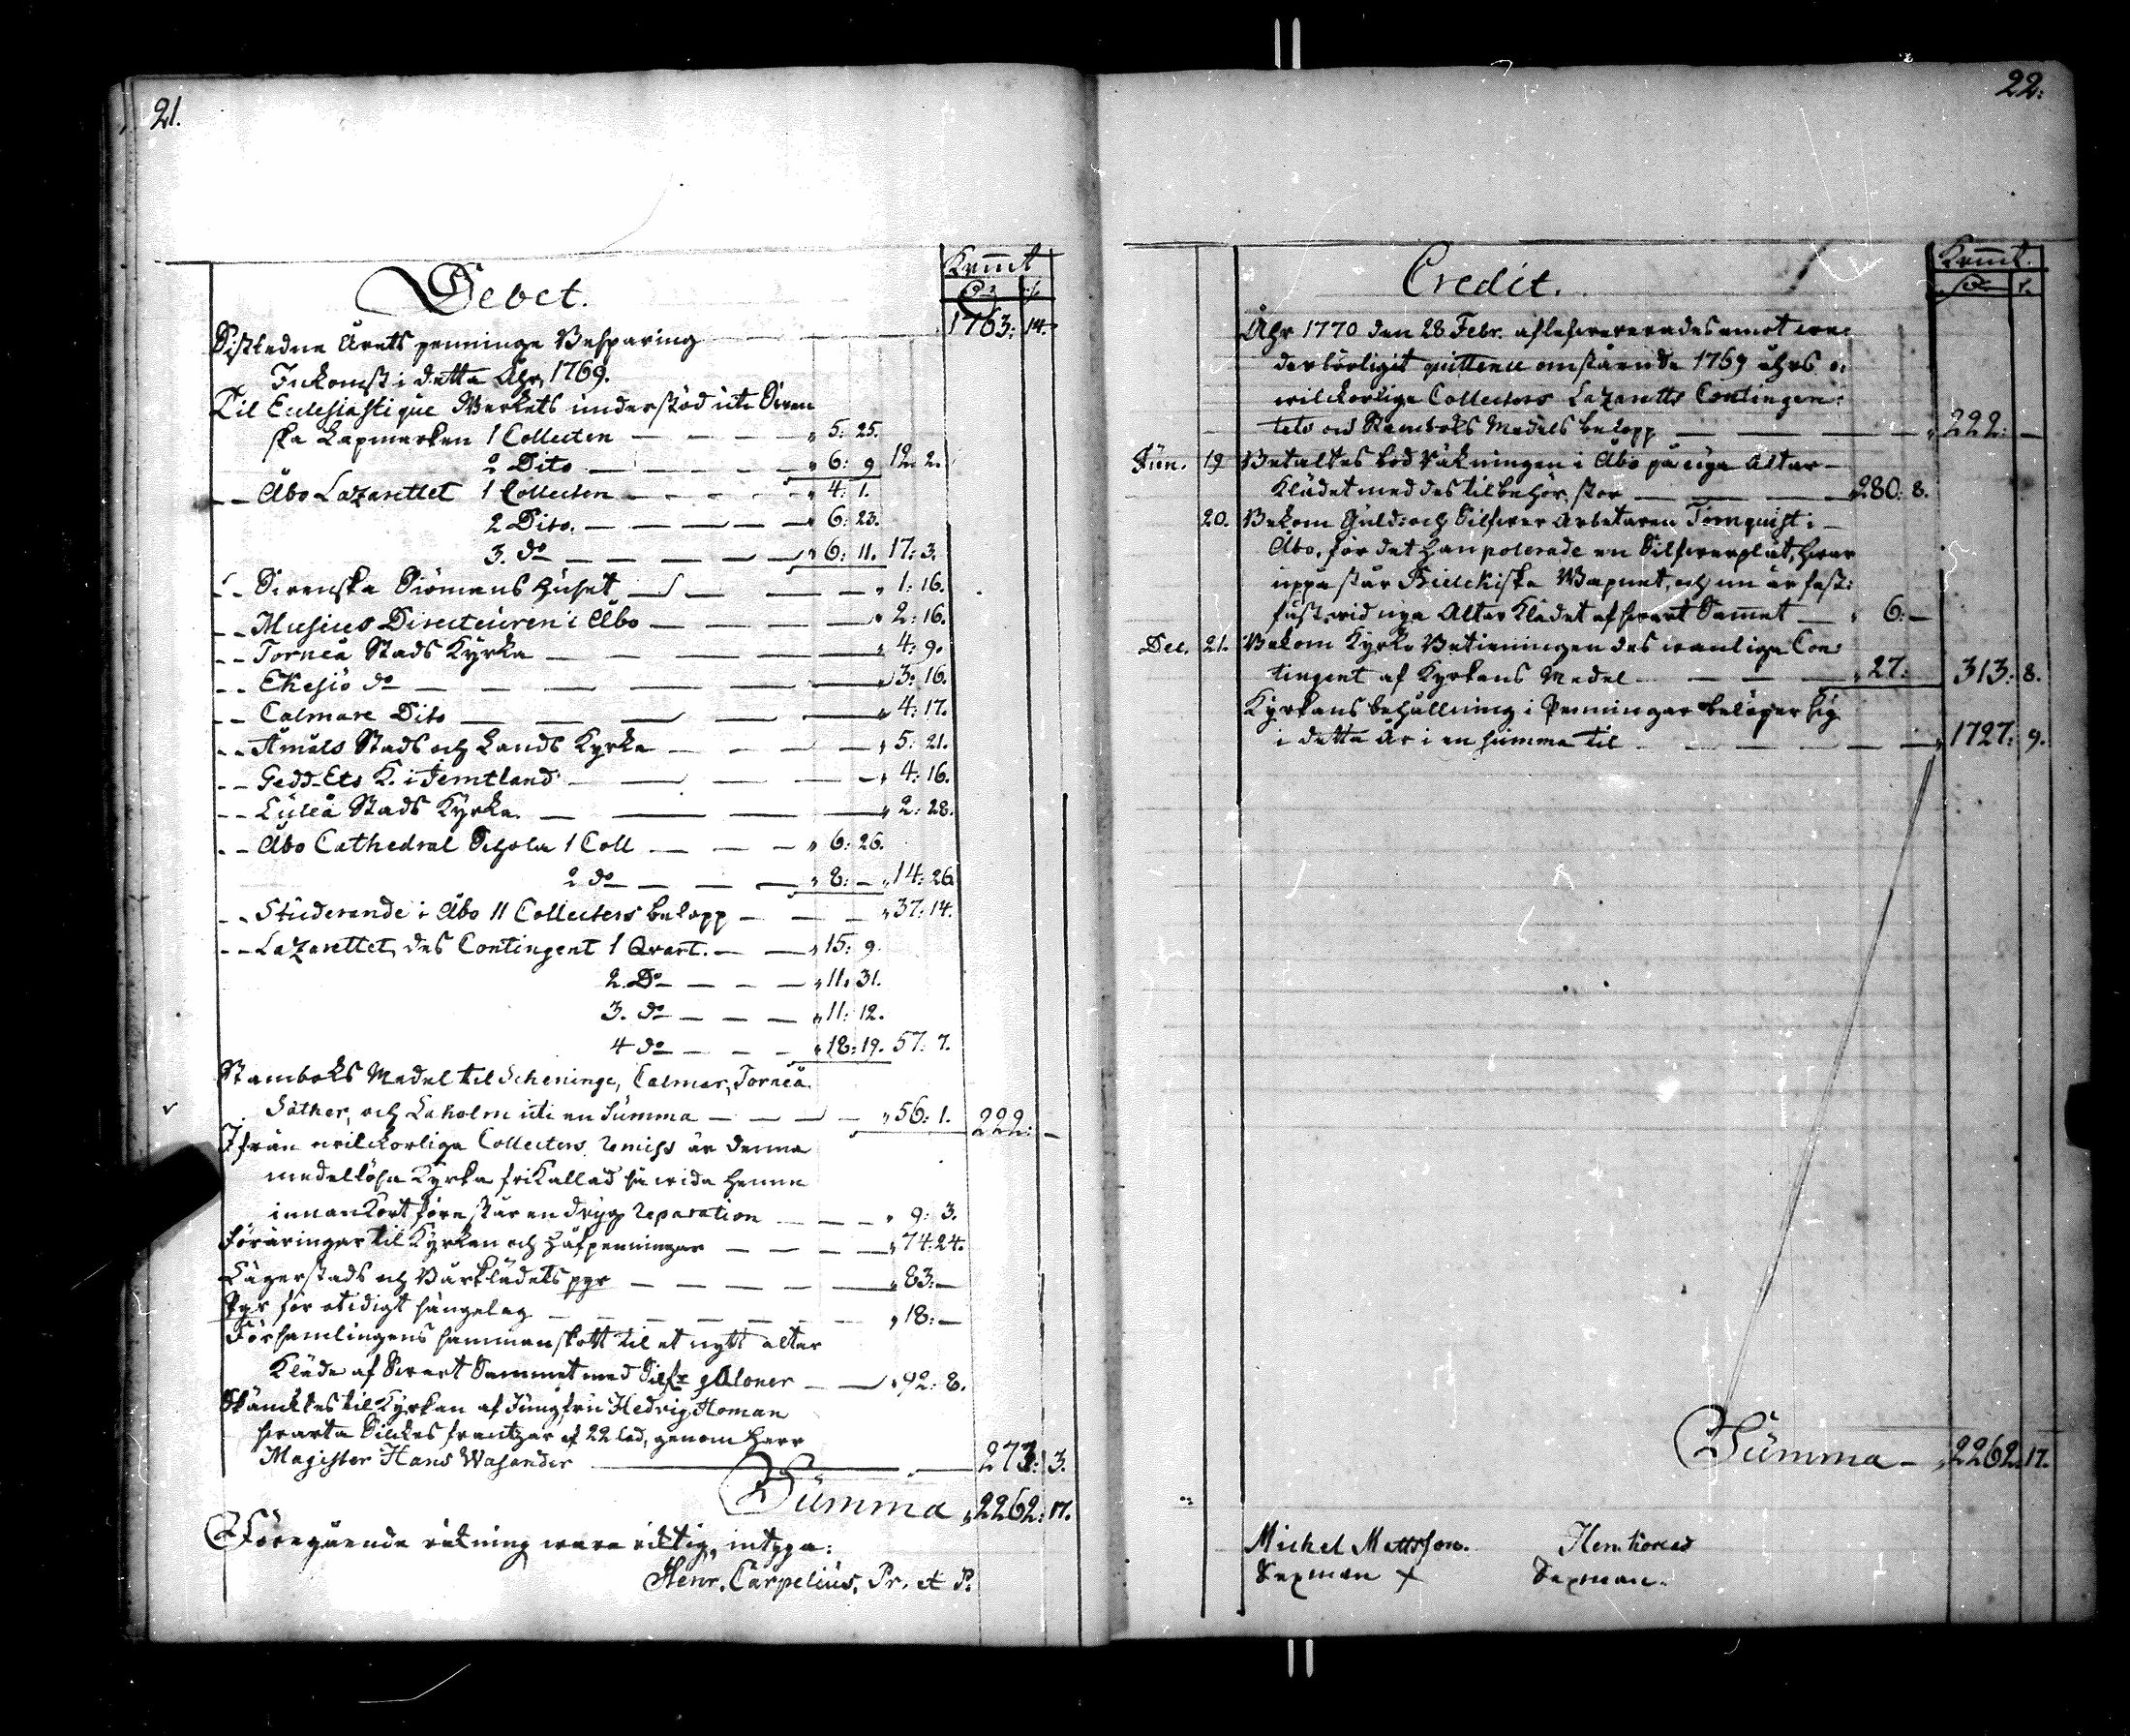 21.
Debet.
Kmmt
1763: 14.
Sistledne Årets penninge Besparing
Inkomst i detta Åhr, 1769.
Til Ecclesiastique Werkets understöd uti Swen
ska Lapmarken 1 Collecten — „ 5: 25.
2 Dito — „ 6: 9 12: 2.
— Åbo Lazarettet 1 Collecten — „ 4: 1.
2 Dito. — „ 6: 23.
3. do — „ 6: 11. 17: 3.
— Swenska Siömans Huset — „ 1: 16.
— Musices Directeuren i Åbo — „ 2: 16.
— Torneå Stads Kyrka — „ 4: 9.
— Ekesiö do — „ 3: 16.
— Calmare Dito — „ 4: 17.
— Åmåls Stads och Lands Kyrka — „ 5: 21.
— Gedd-Ets K. i Jemtland — „ 4: 16.
— Luleå Stads Kyrka. — „ 2: 28.
— Åbo Cathedral Schola 1 Coll — „ 6: 26.
2 do — „ 8: — „ 14: 26
— Studerande i Åbo 11 Collecters belopp — „ 37: 14.
— Lazarettet, des Contingent 1 Qvart. — „ 15: 9.
2. Do — „ 11: 31.
3. do — „ 11: 12.
4 do — „ 18: 19. 57: 7.
Stamboks Medel til Scheninge, Calmar, Torneå
Säther, och Laholm uti en Summa — „ 56: 1. 222: —
Ifrån wilckorliga Collecters remiss är denna
medellösa Kyrka friKallad så wida henne
innan kort förestår en dryg reparation — „ 9: 3.
Föräringar til Kyrkan och Håfpenningar — „ 74: 24.
Lägerstads och Bårklädets pgr — „ 83: —
Pgr för otidigt sängelag — „ 18: —
Församlingens sammanskott til et nytt altar
Kläde af Swart Sammet med Silfr galoner — „ 92: 8.
Skäncktes til Kyrkan af Jungfru Hedvig Homan
swarta Silckes frantzar af 22 lod, genom Herr
Magister Hans Wasander — 273: 3.
Summa „ 2262: 17.
Föregående räkning wara riktig, intyga:
Henr. Carpelius, Pr. et P.
22:
Credit.
Kmmt.
Åhr 1770 den 28 Febr. aflefwererades emot we:
derbörligit quittence omstående 1769 åhrs o:
wilckorliga Collecters Lazaretts Contingen:
tets och Stamboks Medels belopp — „ 222: —
Jun. 19 Betaltes bod räkningen i Åbo på nya Altar
Klädet med des tilbehör, stor — „ 280: 8.
20. Bekom Guld: och Silfwer Arbetaren Tornquist i
Åbo, för det han polerade en Silfwerplåt, hwar
uppå står Bielckiska Wapnet, och nu är fast:
fäst wid nya Altar Klädet af swart Samet — „ 6: —
Dec. 21. Bekom Kyrko Betieningen des wanliga Con:
tingent af Kyrkans Medel — „ 27: 313: 8.
Kyrkans behållning i Penningar belöper sig
i detta År i en summa til — „ 1727: 9.
Summa — „ 2262: 17.
Michel Mattsson.
Sexman X
Sexman.